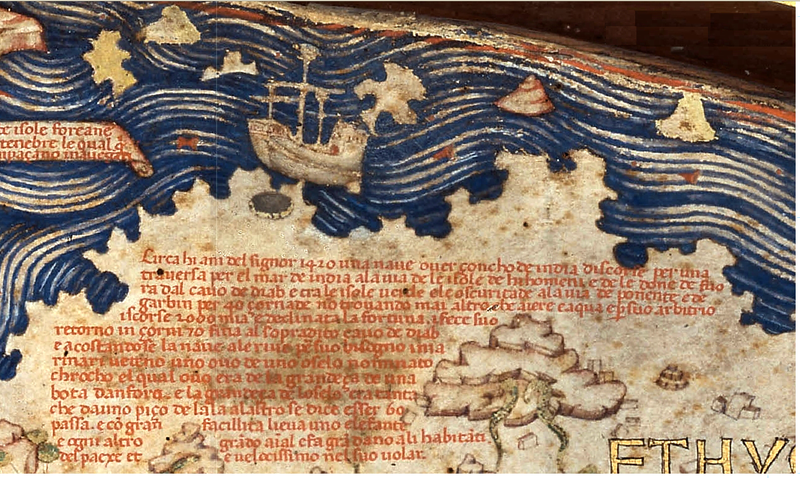 te isole foreane
tenebre le qual
Circa hi ani del signor 1420 una naue ouer çoncho de india discorse per una
trauersa per el mar de india a la uia de le isole de hi homeni e de le done de fuo
ra dal cauo de diab e tra le isole uerde e le oscuritade a la uia de ponente e de
garbin per 40 çornade non trouando mai altro che aiere e aqua e per suo arbitrio
iscorse 2000 mia e declinata la fortuna i fece suo
retorno in çorni 70 fina al sopradito cauo de diab
e acostandose la naue a le riue per suo bisogno i ma
rinari uedeno uno ouo de uno oselo nominato
chrocho el qual ouo era de la grandeça de una
bota d'anfora e la grandeça de l'oselo era tanta
che da uno piço de l'ala a l'altro se dice esser 60
passa. e cō gran facillita lieua uno elefante
e ogni altro grando aīal e fa gran dano a li habitāti
del paexe et e uelocissimo nel suo uolar.
ETHYO